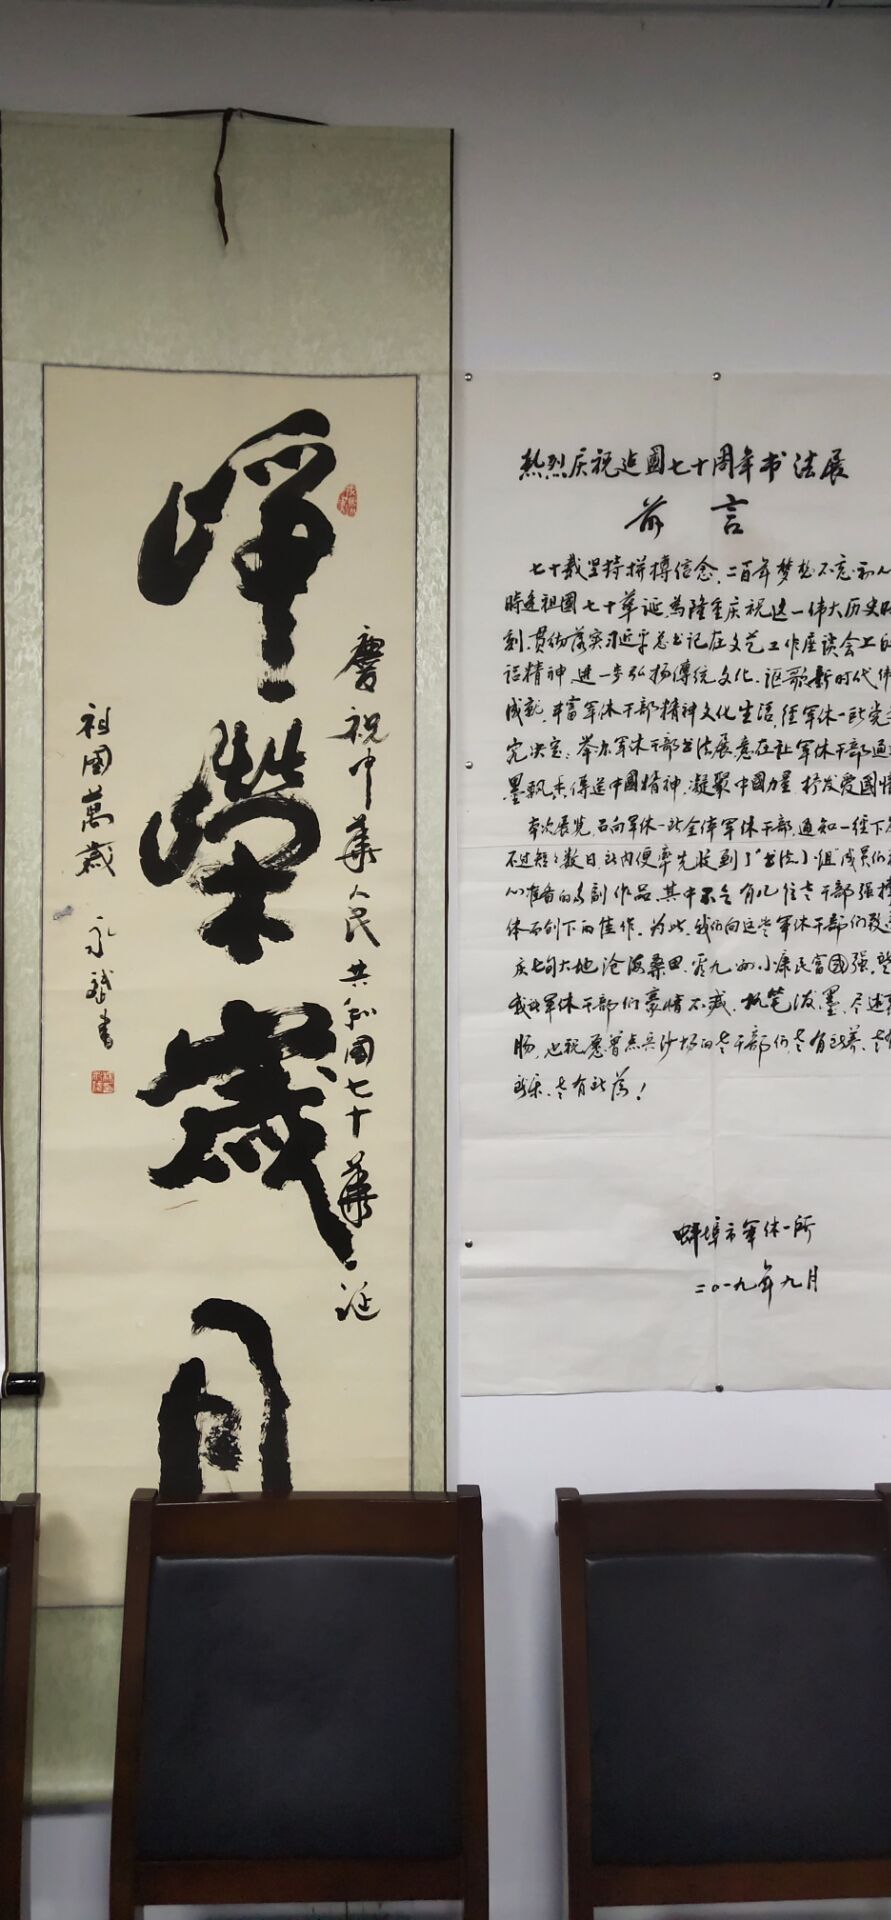 峥嵘岁月
慶祝中華人民共和國七十華诞
祖國萬歲 永斌書
热烈庆祝建國七十周年书法展
前言
七十载坚持拼搏信念,二百年梦想不忘初心
時逢祖國七十华诞,為隆重庆祝这一伟大历史时
刻,贯彻落实习近平总书记在文艺工作座谈会上的
话精神,进一步弘扬傳统文化,讴歌新时代伟
成就,丰富军休干部精神文化生活,经军休一所党
究决定,举办军休干部书法展,意在让军休干部通过
墨飘香傳送中國精神,凝聚中國力量,抒发爱國情
本次展览,面向军休一所全体军休干部,通知一经下发
不过短短数日,所内便率先收到了"书法"小组成员们
心准备的多副作品,其中不乏有几位老干部强撑
体而创下的佳作。为此,我们向这些军休干部们致
庆七旬大地沧海桑田,看九州小康民富國强,
我所军休干部们豪情不减,执笔泼墨,尽述
肠,也祝愿曾点兵沙场的老干部们,老有所养、老
所乐、老有所为!
蚌埠市军休一所
二〇一九年九月